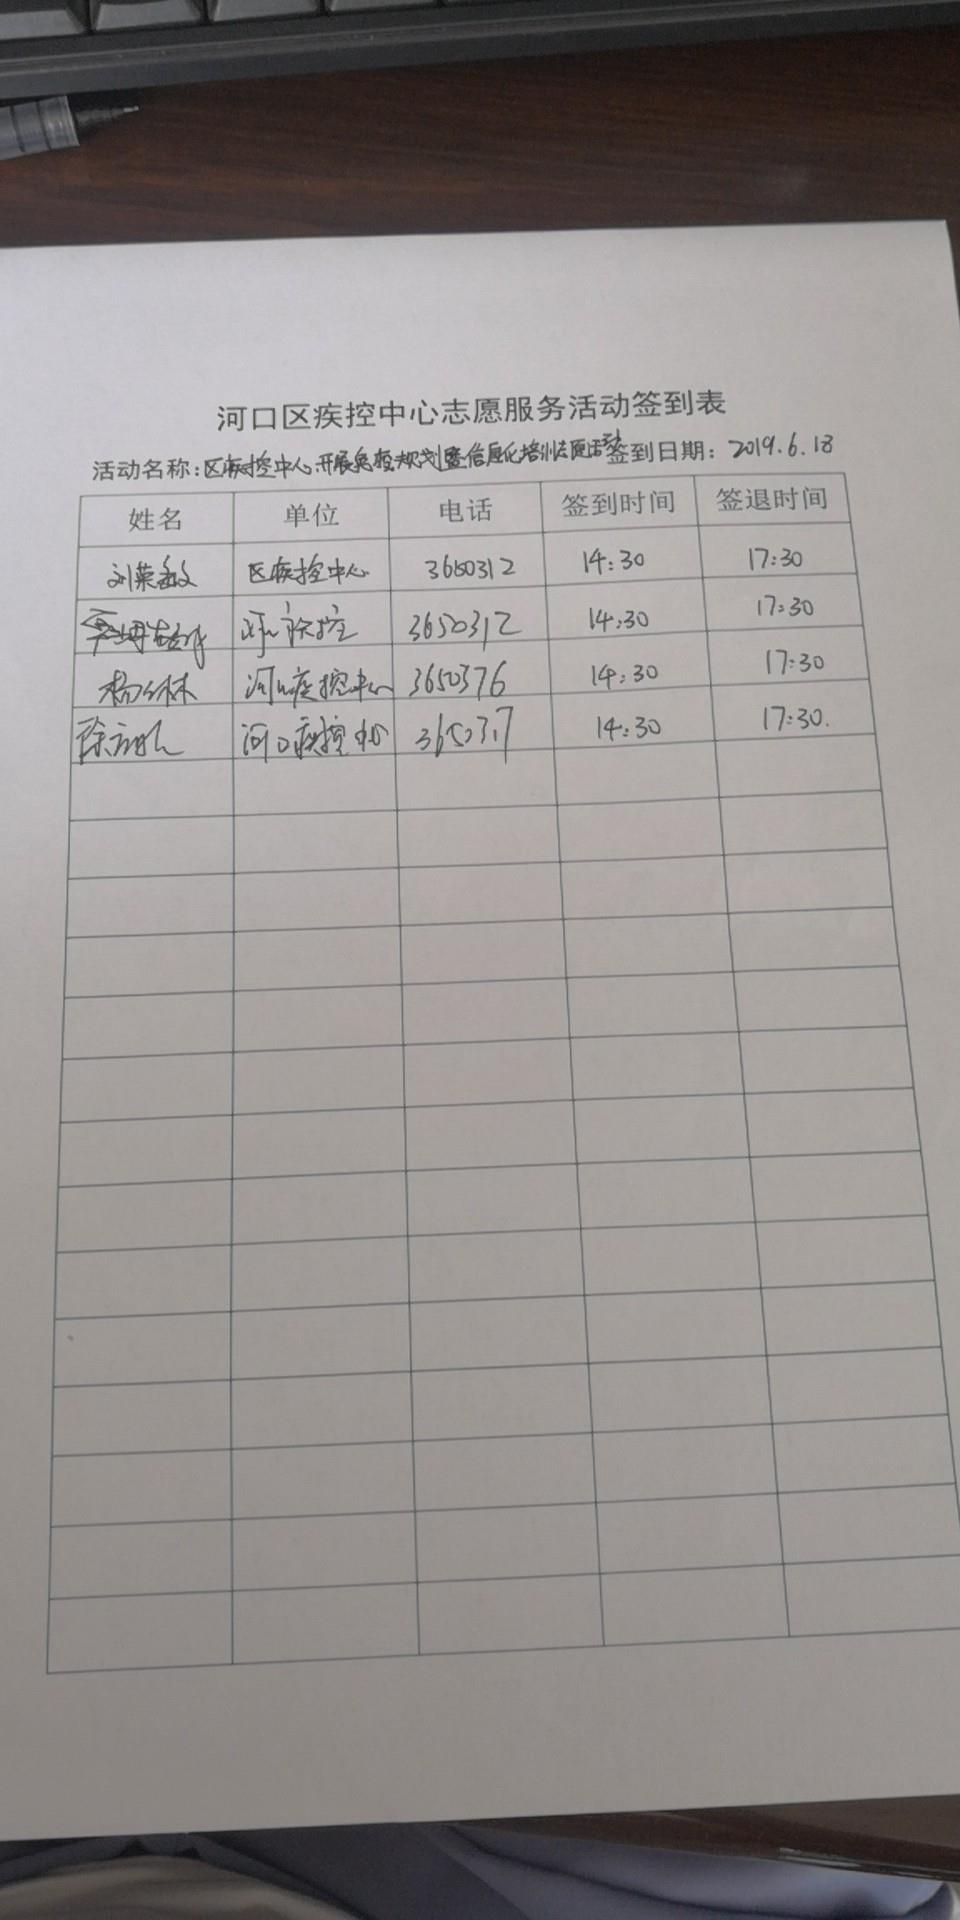 河口区疾控中心志愿服务活动签到表
活动名称：区疾控中心开展免疫规划暨信息化培训志愿活动 签到日期：2019.6.18
姓名 单位 电话 签到时间 签退时间
刘荣敏 区疾控中心 3650312 14:30 17:30
河口疾控 3650312 14:30 17:30
杨 林 河口疾控中心 3650376 14:30 17:30
徐 河口疾控中心 365037 14:30 17:30.